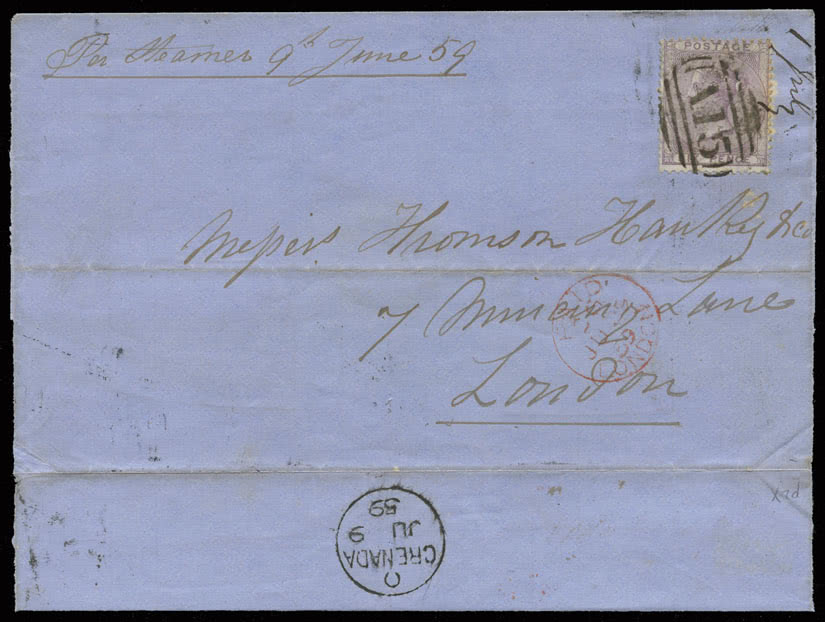 Per Steamer 9th June 59
POSTAGE
A15
PENCE
Messrs Thomson Hankey & Co
7 Mincing Lane
London
PAID
LONDON
59
GRENADA
JU 9
59